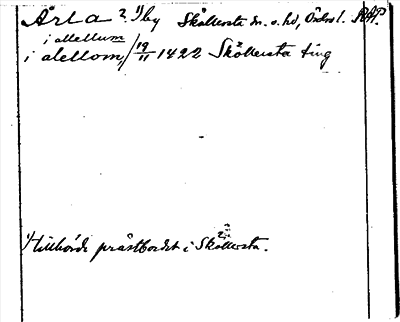 Årla ? 1) by Sköllersta sn. o. hd, Örebro l. RAP.
i allellum
i alellom, 19/11 1422 Sköllersta ting
1) tillhörde prästbordet i Sköllersta.